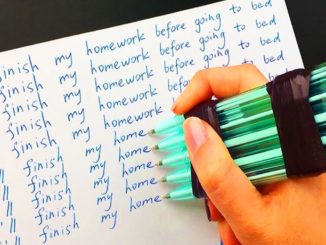 finish my homework before going to bed
finish my homework before going to bed
finish my homework before going to bed
finish my homework before going to bed
finish my home
finish my home
finish my home
finish my home